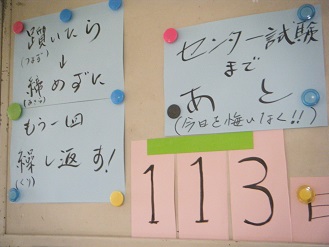 躓いたら
(つまず)
↓
諦めずに
(あきら)
もう一回
繰し返す!
(くり)
センター試験
まで
あと
(今日を悔いなく!!)
113日